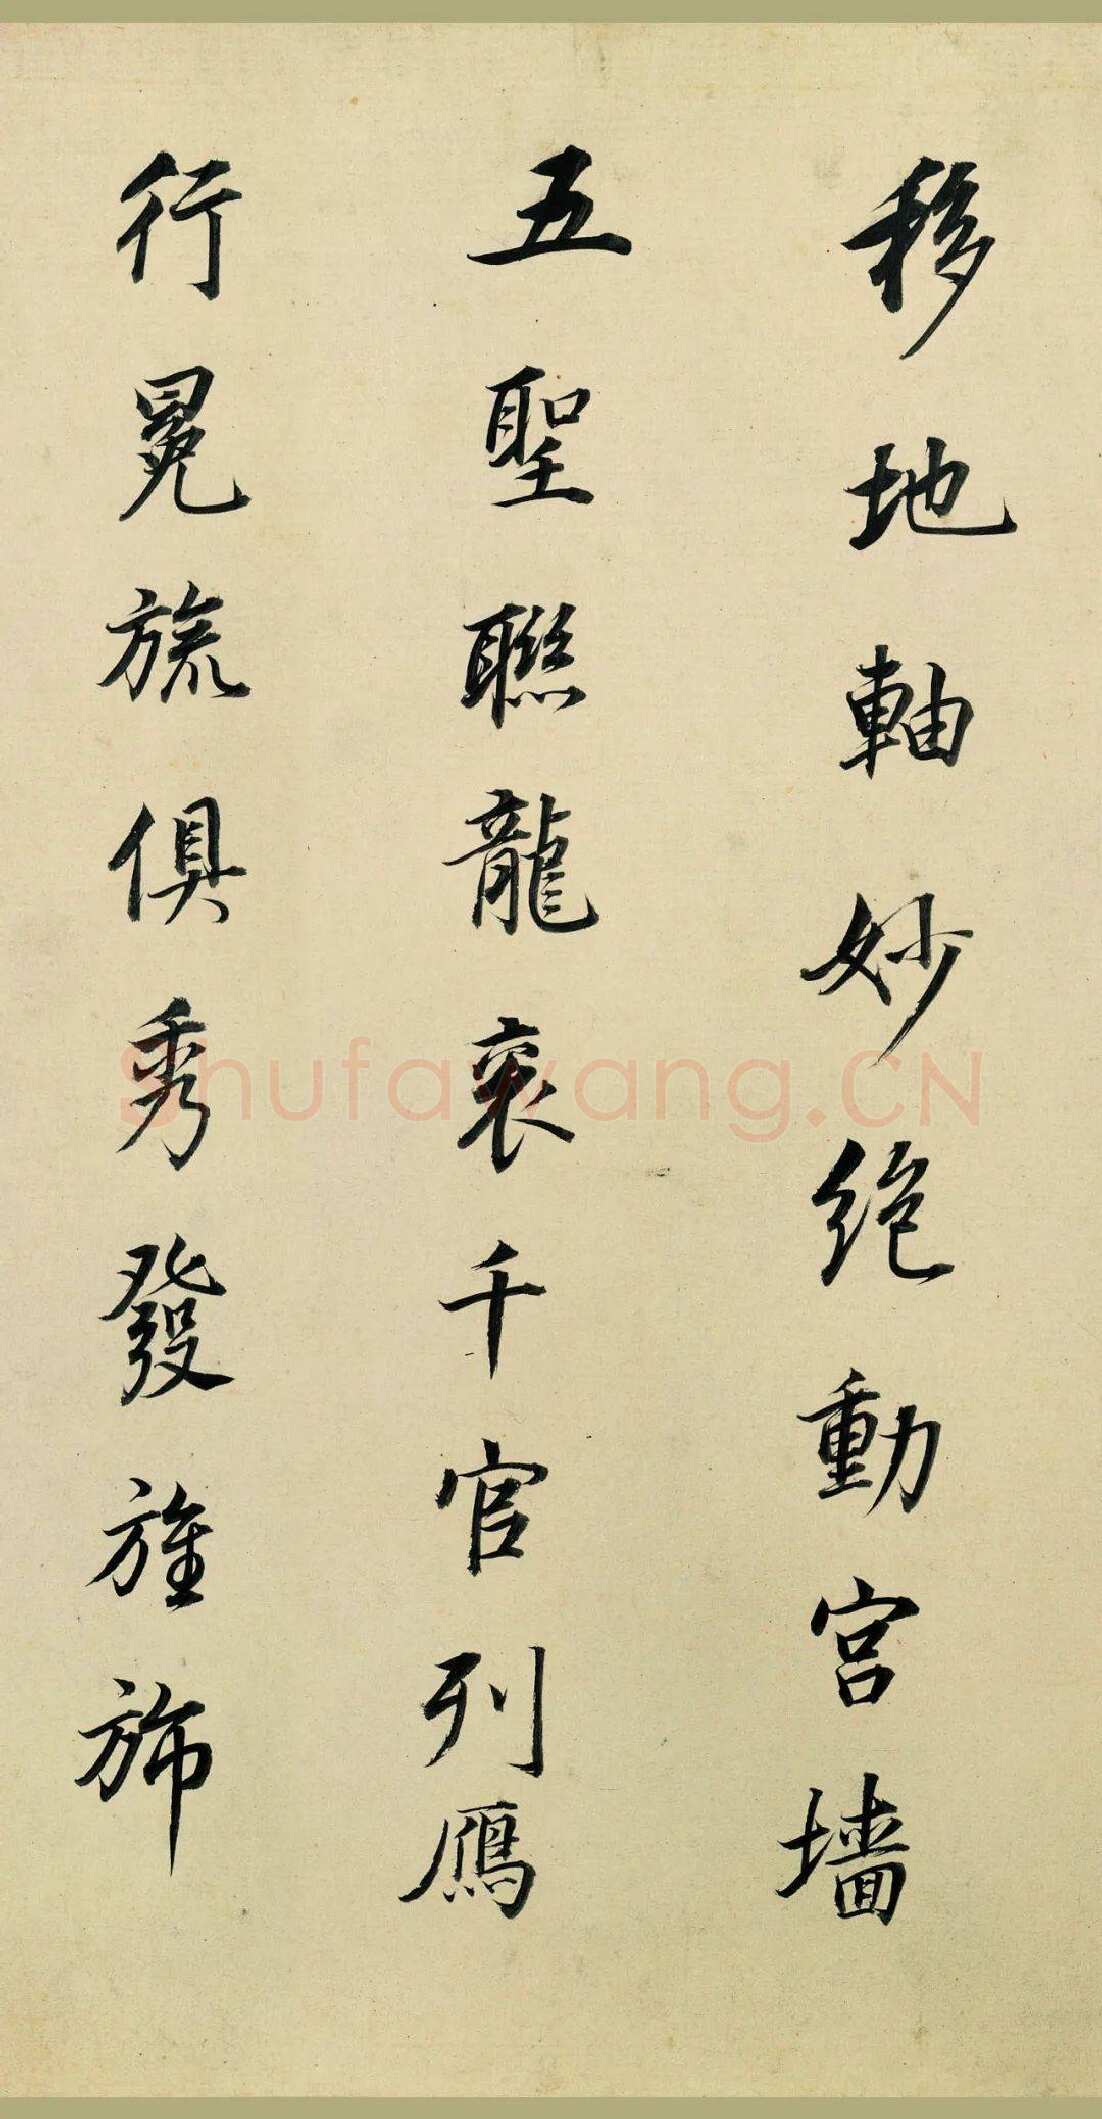 移地軸妙絶動宮墻
五聖聯龍衮千官列鴈
行冕旒俱秀發旌旆
Shufawang.CN